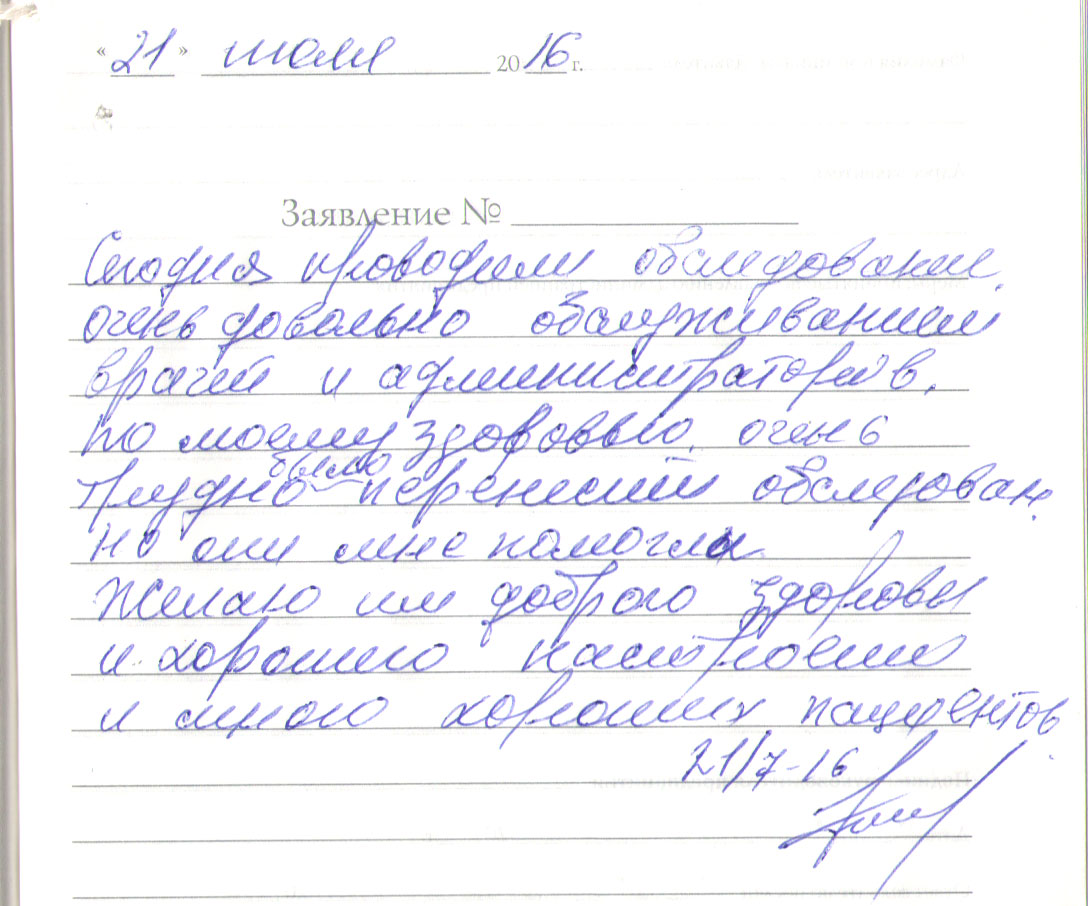 «21» июля 2016 г.
Заявление №
Сегодня проводили обследование
очень довольно обслуживанием
врачей и администраторов.
по моему здоровью. очень
было
трудно перенести обследован.
но они мне помогли.
Желаю им доброго здоровья
и хорошего настроения
и много хороших пациентов
21/7-16